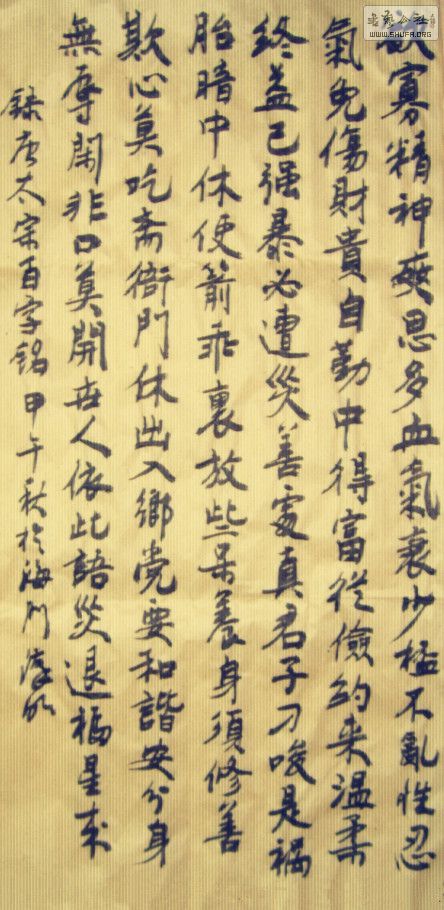 书艺公社
WWW.SHUFA.ORG
欲寡精神爽思多血氣衰少不亂性忍
氣免傷財貴自勤中得富從儉约来温柔
終益己强暴必遭災善處真君子刁唆是禍
胎暗中休使箭乖裏放些呆養身須修善
欺心莫吃斋衙門休出入鄉党要和諧安分身
無辱閑非口莫開世人依此語災退福星来
錄唐太宗百字铭甲午秋於海门